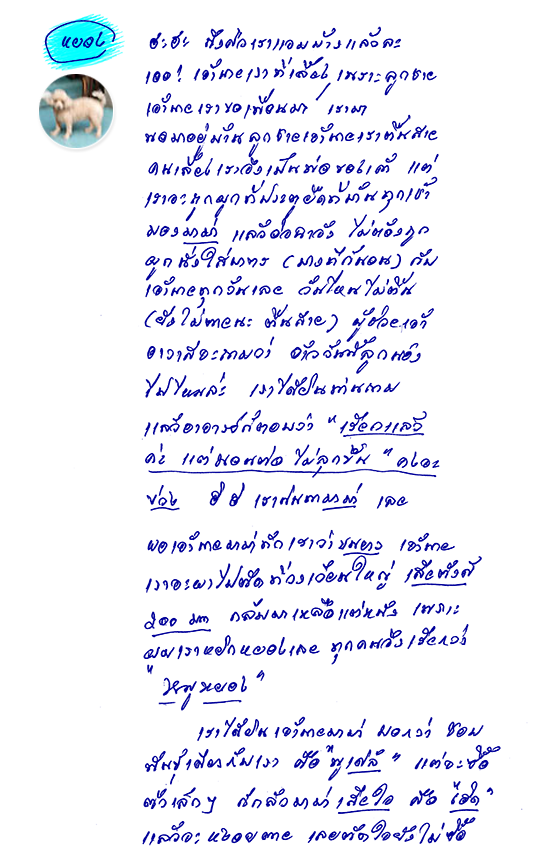 หยอง
ฮะฮะ ถึงตัวเราแอมบ้างแล้วละ
เออ! เจ้านายเราที่เลี้ยง เพราะลูกชาย
เจ้านายเราขอเพื่อนมา เรามา
นอนอยู่บ้าน ลูกชายเจ้านายเราตื่นสาย
คนเลี้ยงเราจึงเป็นพ่อของเค้า แต่
เราจะถูกผูกที่ประตูยืดที่บ้านทุกเช้า
มองมาม่า แล้ว ไม่ต้องถูก
ผูก นั่งใส่บาตร (บางทีก็นอน) กับ
เจ้านายทุกวันเลย วันไหนไม่ตื่น
(ยังไม่ตายนะ ตื่นสาย) ผู้ช่วยเจ้า
อาวาสจะถามว่า อ้าววันนี้ลูกน้อง
ไปไหนล่ะ เราได้ยินท่านถาม
แล้วอาจารย์ก็ตอบว่า "เรียกแล้ว
ค่ะ แต่นอนต่อ ไม่ลุกขึ้น" คงจะ
ง่วง ฮิ ฮิ เราฟังมาม่า เลย
พอเจ้านายมาม่าทักเราว่าขนยาว เจ้านาย
เราจะพาไปตัดที่วงเวียนใหญ่ เสียตังค์
๒๐๐ บาท กลับมาเหลือแต่หนัง เพราะ
ผมเราหยิกหยองเลย ทุกคนจึงเรียกว่า
"หนูหยอง"
เราได้ยินเจ้านายมาม่า บอกว่า ชอบ
พันธุ์เดียวกับเรา คือ "พูเดิ้ล" แต่จะซื้อ
ตัวเล็กๆ ก็กลัวมาม่าเสียใจ คือ "เฮิด"
แล้วจะหงอยตาย เลยตัดใจยังไม่ซื้อ